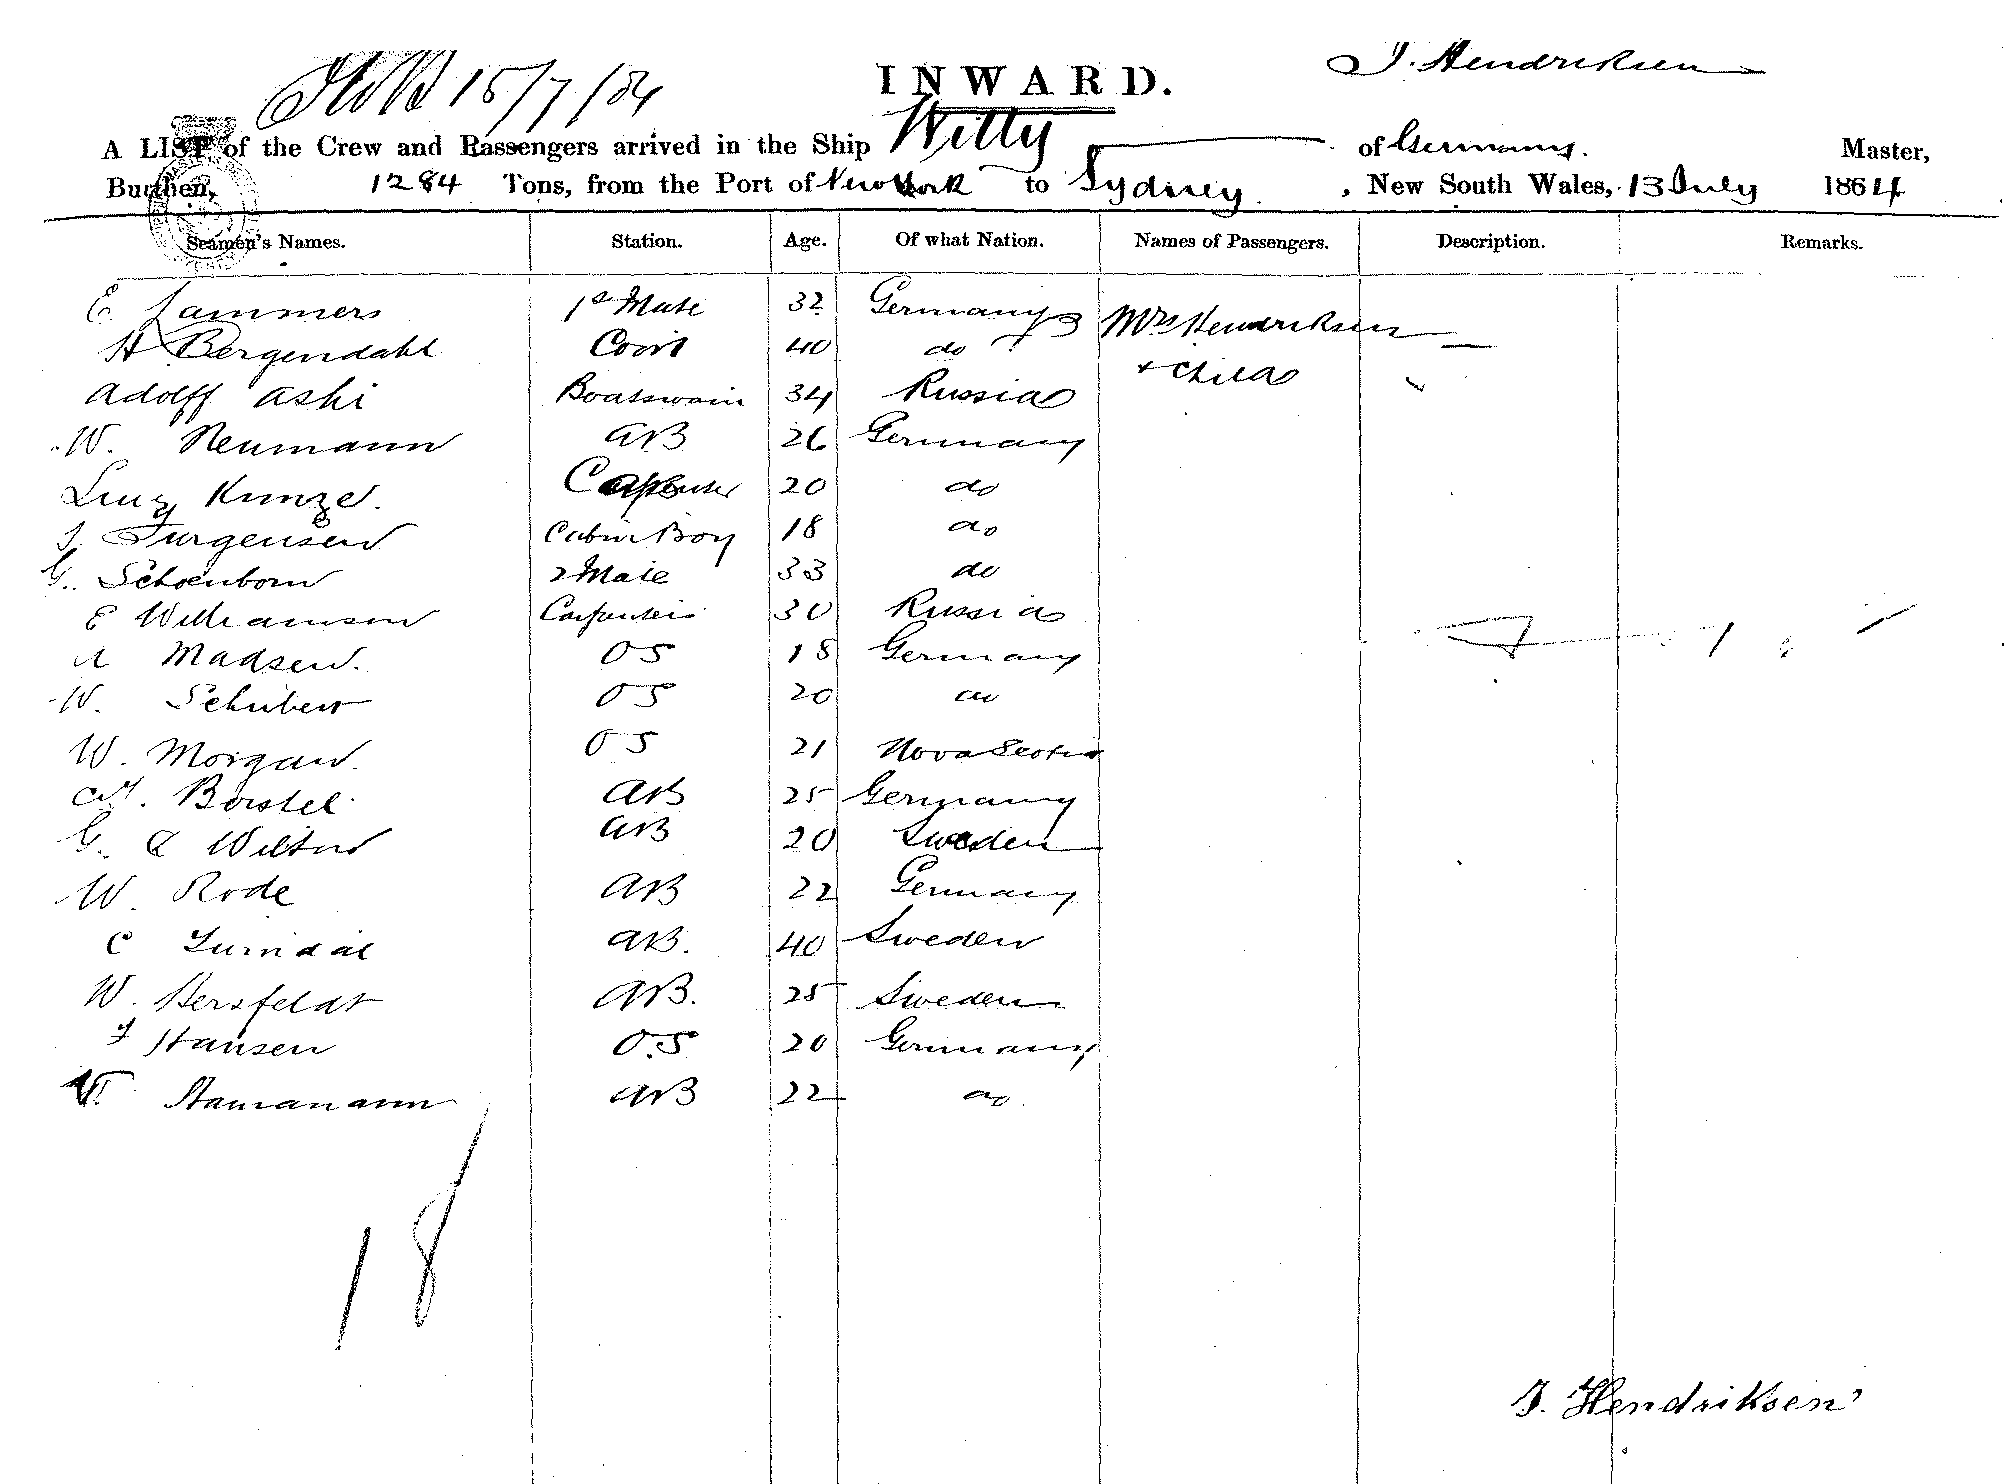 15/7/84
INWARD.
J. Hendriksen
A LIST of the Crew and Passengers arrived in the Ship Witty of Germany. Master,
Burthen, 1284 Tons, from the Port of New York to Sydney, New South Wales, 13 July 1864
Seamen's Names. Station. Age. Of what Nation. Names of Passengers. Description. Remarks.
E Lammers 1st Mate 32 Germany Mrs Hendriksen
H Bergendahl Cook 40 do
+ Child
Adolff Ashi Boatswain 34 Russia
W. Neumann AB 26 Germany
Kunze. Carpenter 20 do
J. Jurgensen Cabin Boy 18 do
G. Schoenborn 2 Mate 33 do
E Williamson Carpenter 30 Russia
A Madsen. OS 18 Germany
W. Schubert OS 20 do
W. Morgan. OS 21 Nova Scotia
Borstel AB 25 Germany
G. AB 20 Sweden
W. Rode AB 22 Germany
C AB. 40 Sweden
W. Hersfeldt AB. 25 Sweden
Hansen O.S 20 Germany
W. AB 22 do
18
J. Hendriksen